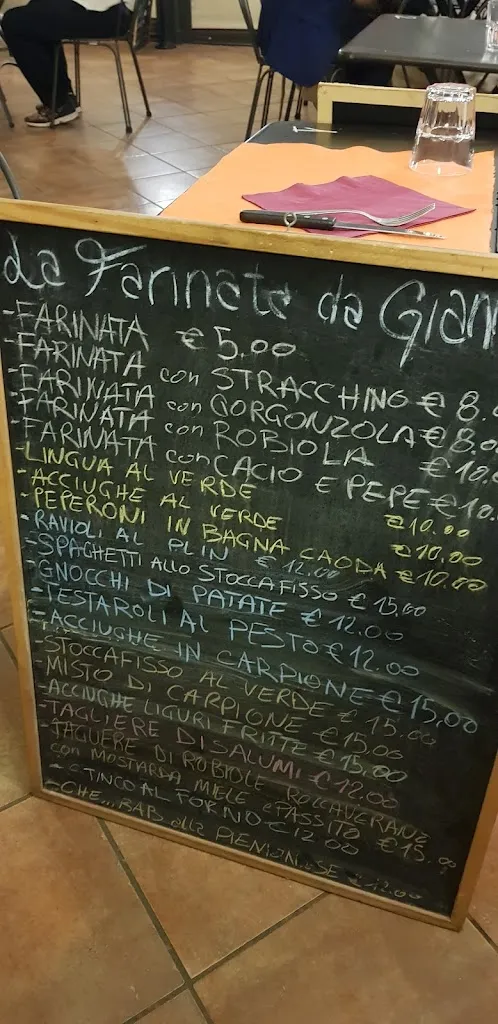 La Farinata da GIAN
-FARINATA €5,00
-FARINATA con STRACCHINO € 8.
-FARINATA con GORGONZOLA € 8.0
-FARINATA con ROBIOLA € 10.
-FARINATA con CACIO E PEPE €10.
-LINGUA AL VERDE €10.00
-ACCIUGHE AL VERDE €10.00
-PEPERONI IN BAGNA CAODA €10.00
-RAVIOLI AL PLIN € 12.00
-SPAGHETTI ALLO STOCCAFISSO € 15,00
-GNOCCHI DI PATATE € 12.00
-TESTAROLI AL PESTO € 12.00
-ACCIUGHE IN CARPIONE € 15,00
-STOCCAFISSO AL VERDE € 15.00
-MISTO DI CARPIONE € 15,00
-ACCIUGHE LIGURI FRITTE € 15,00
-TAGLIERE DI SALUMI € 12.00
-TAGLIERE DI ROBIOLE ROCCAVERANO
con MOSTARDA MIELE e PASSITO € 15.00
-STINCO AL FORNO € 12.00
-CHE...BAB alla PIEMONTESE € 12.00